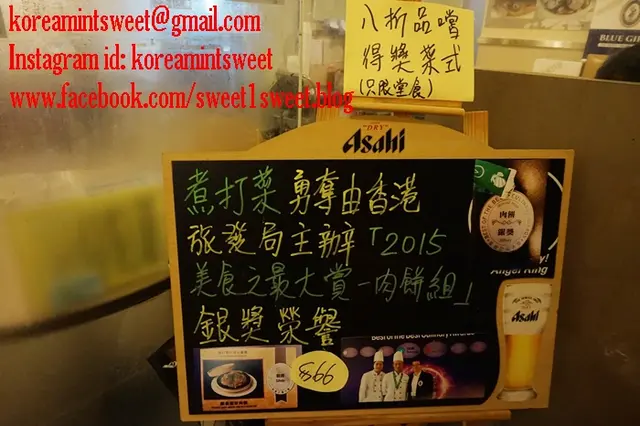 koreamintsweet@gmail.com
Instagram id: koreamintsweet
www.facebook.com/sweet1sweet.blog
八折品嚐
得獎菜式
(只限堂食)
BLUE GI
"DRY"
Asahi
煮打菜勇奪由香港
旅發局主辦「2015
美食之最大賞-肉餅組」
銀獎榮譽
肉餅
銀獎
Angel King
Asahi
$66
Best of the Best Culinary Awards